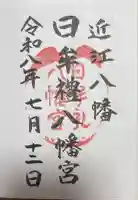 近江八幡
日牟禮八幡宮
令和八年七月十二日